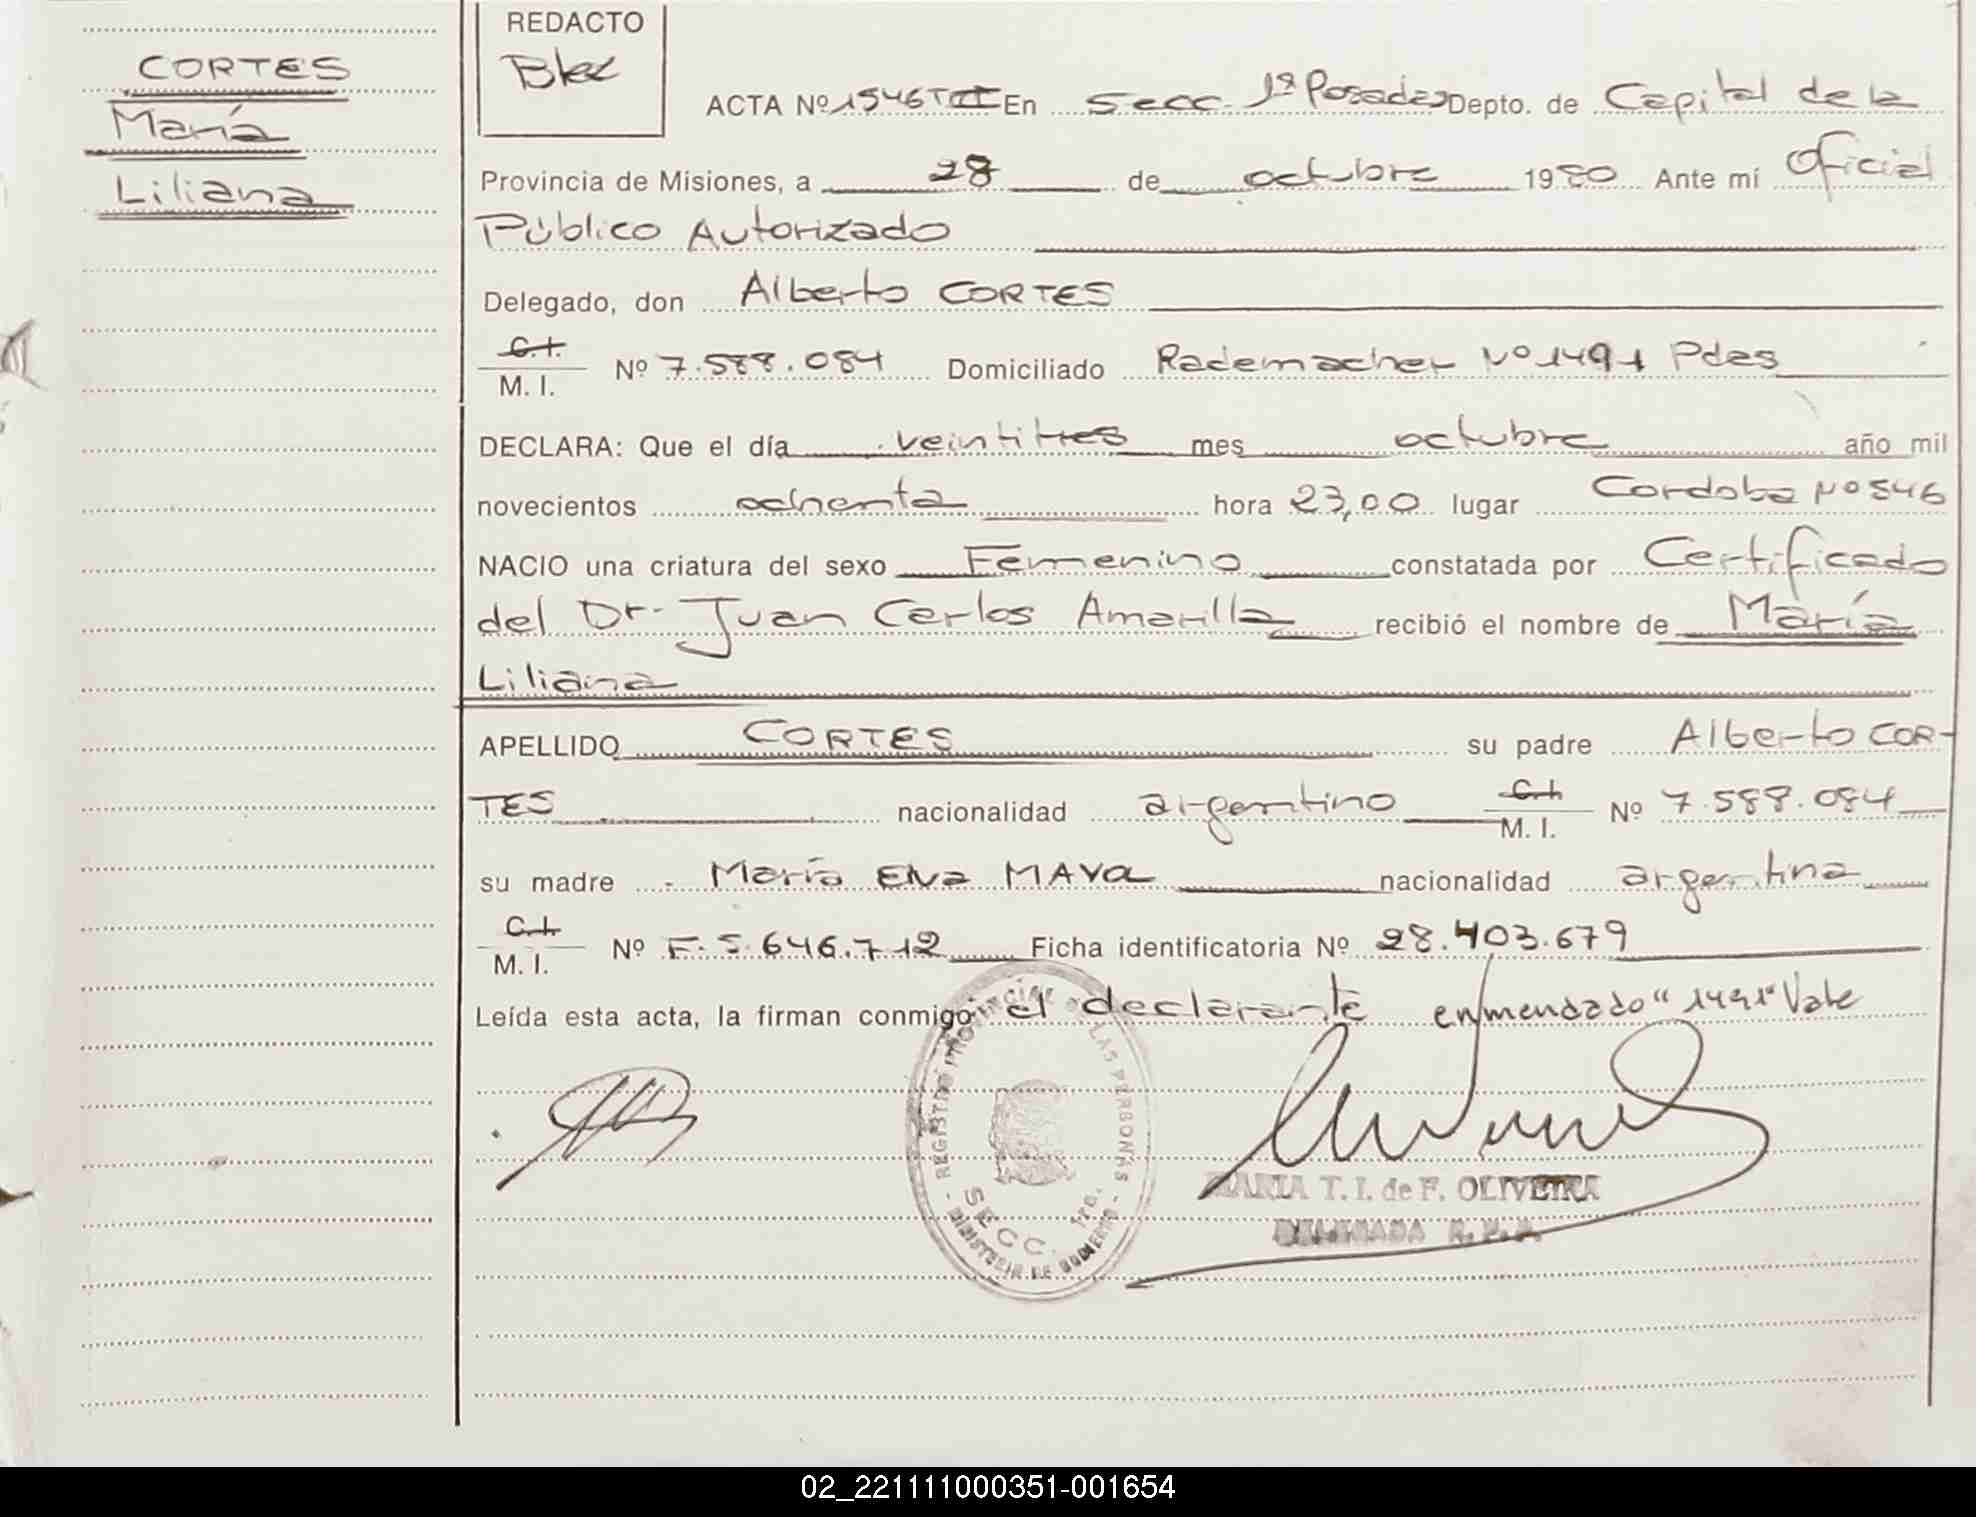 CORTES
María
Liliana
REDACTO
Blec
ACTA Nº 1546 T III En Secc. 1ª Posadas Depto. de Capital de la
Provincia de Misiones, a 28 de octubre 1980 Ante mí Oficial
Público Autorizado
Delegado, don Alberto CORTES
C.I. M. I. Nº 7.588.084 Domiciliado Rademacher Nº 1491 Pdas
DECLARA: Que el día veintitres mes octubre año mil
novecientos ochenta hora 23,00 lugar Cordoba Nº 546
NACIO una criatura del sexo Femenino constatada por Certificado
del Dr. Juan Carlos Amarilla recibió el nombre de María
Liliana
APELLIDO CORTES su padre Alberto COR-
TES nacionalidad argentino C.I. M. I. Nº 7.588.084
su madre María Elva MAYA nacionalidad argentina
C.I. M. I. Nº F. 5.646.712 Ficha identificatoria Nº 28.403.679
Leída esta acta, la firman conmigo el declarante enmendado "1491" Vale
REGISTRO PROVINCIAL DE LAS PERSONAS
SECC. 1ra.
MINISTERIO DE GOBIERNO
MARIA T. I. de F. OLIVEIRA
DELEGADA R. P. P.
02_221111000351-001654